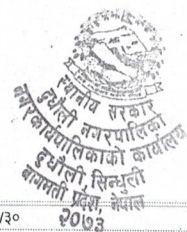 स्थानीय सरकार
दुधौली नगरपालिका
नगर कार्यपालिकाको कार्यालय
दुधौली, सिन्धुली
बागमती प्रदेश, नेपाल
२०७३
/३०